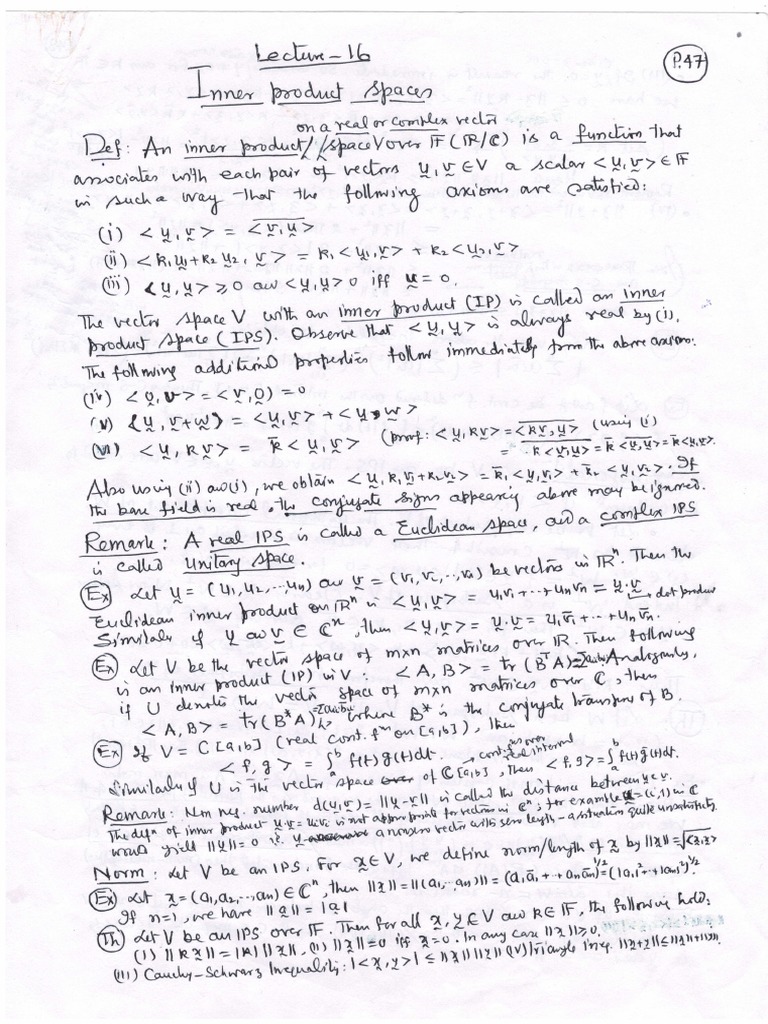 Lecture-16
P.47
Inner product spaces
on a real or complex vector
Def: An inner product // space V over 𝔽 (ℝ/ℂ) is a function that
associates with each pair of vectors u, v ∈ V a scalar <u, v> ∈ 𝔽
in such a way that the following axioms are satisfied:
(i) <u, v> = \overline{<v, u>}
(ii) <k₁u₁ + k₂u₂, v> = k₁<u₁, v> + k₂<u₂, v>
(iii) <u, u> ≥ 0 and <u, u> 0 iff u = 0.
The vector space V with an inner product (IP) is called an inner
product space (IPS). Observe that <u, u> is always real by (i).
The following additional properties follow immediately from the above axioms:
(iv) <0, v> = <v, 0> = 0
(v) <u, v+w> = <u, v> + <u, w>
(vi) <u, kv> = k̄<u, v> (proof: <u, kv> = \overline{<kv, u>} (using (i)
= \overline{k<v, u>} = k̄ \overline{<v, u>} = k̄<u, v>.
Also using (ii) and (i), we obtain <u, k₁v₁ + k₂v₂> = k̄₁<u, v₁> + k̄₂<u, v₂>. If
the base field is real, the conjugate signs appearing above may be ignored.
Remark: A real IPS is called a Euclidean space, and a complex IPS
is called Unitary space.
Ex Let u = (u₁, u₂, ..., uₙ) and v = (v₁, v₂, .., vₙ) be vectors in ℝⁿ. Then the
Euclidean inner product on ℝⁿ is <u, v> = u₁v₁ + ... + uₙvₙ = u.v → dot product
Similarly if u and v ∈ ℂⁿ, then <u, v> = u.v = u₁v̄₁ + ... + uₙv̄ₙ.
Ex Let V be the vector space of mxn matrices over ℝ. Then following
is an inner product (IP) in V. <A, B> = tr(BᵀA) Analogously,
if U denote the vector space of mxn matrices over ℂ, then
<A, B> = tr(B*A) where B* is the conjugate transpose of B.
Ex If V = C[a,b] (real cont. fⁿ on [a,b]), then
<f, g> = ∫ₐᵇ f(t)g(t)dt. → cont. fns over real interval
Similarly if U is the vector space over of ℂ[a,b], then <f, g> = ∫ₐᵇ f(t)ḡ(t)dt.
Remark: Non neg. number d(u,v) = ||u-v|| is called the distance between u & v.
The defⁿ of inner product u.v = uᵢvᵢ is not appropriate for vectors in ℂⁿ; for example u = (i, 1) in ℂ
would yield ||u|| = 0 i.e. a nonzero vector with zero length - a situation quite unsatisfactory.
Norm: Let V be an IPS. For x ∈ V, we define norm/length of x by ||x|| = √<x, x>
Ex Let x = (a₁, a₂, .., aₙ) ∈ ℂⁿ, then ||x|| = ||(a₁, .. aₙ)|| = (a₁ā₁ + .. + aₙāₙ)^{1/2} = (|a₁|² + .. + |aₙ|²)^{1/2}.
If n=1, we have ||a|| = |a|
Th Let V be an IPS over 𝔽. Then for all x, y ∈ V and k ∈ 𝔽, the following hold:
(i) ||kx|| = |k| ||x||, (ii) ||x|| = 0 iff x = 0. In any case ||x|| ≥ 0.
(iii) Cauchy-Schwarz Inequality: |<x, y>| ≤ ||x|| ||y|| (iv) Triangle ineq. ||x+y|| ≤ ||x|| + ||y||